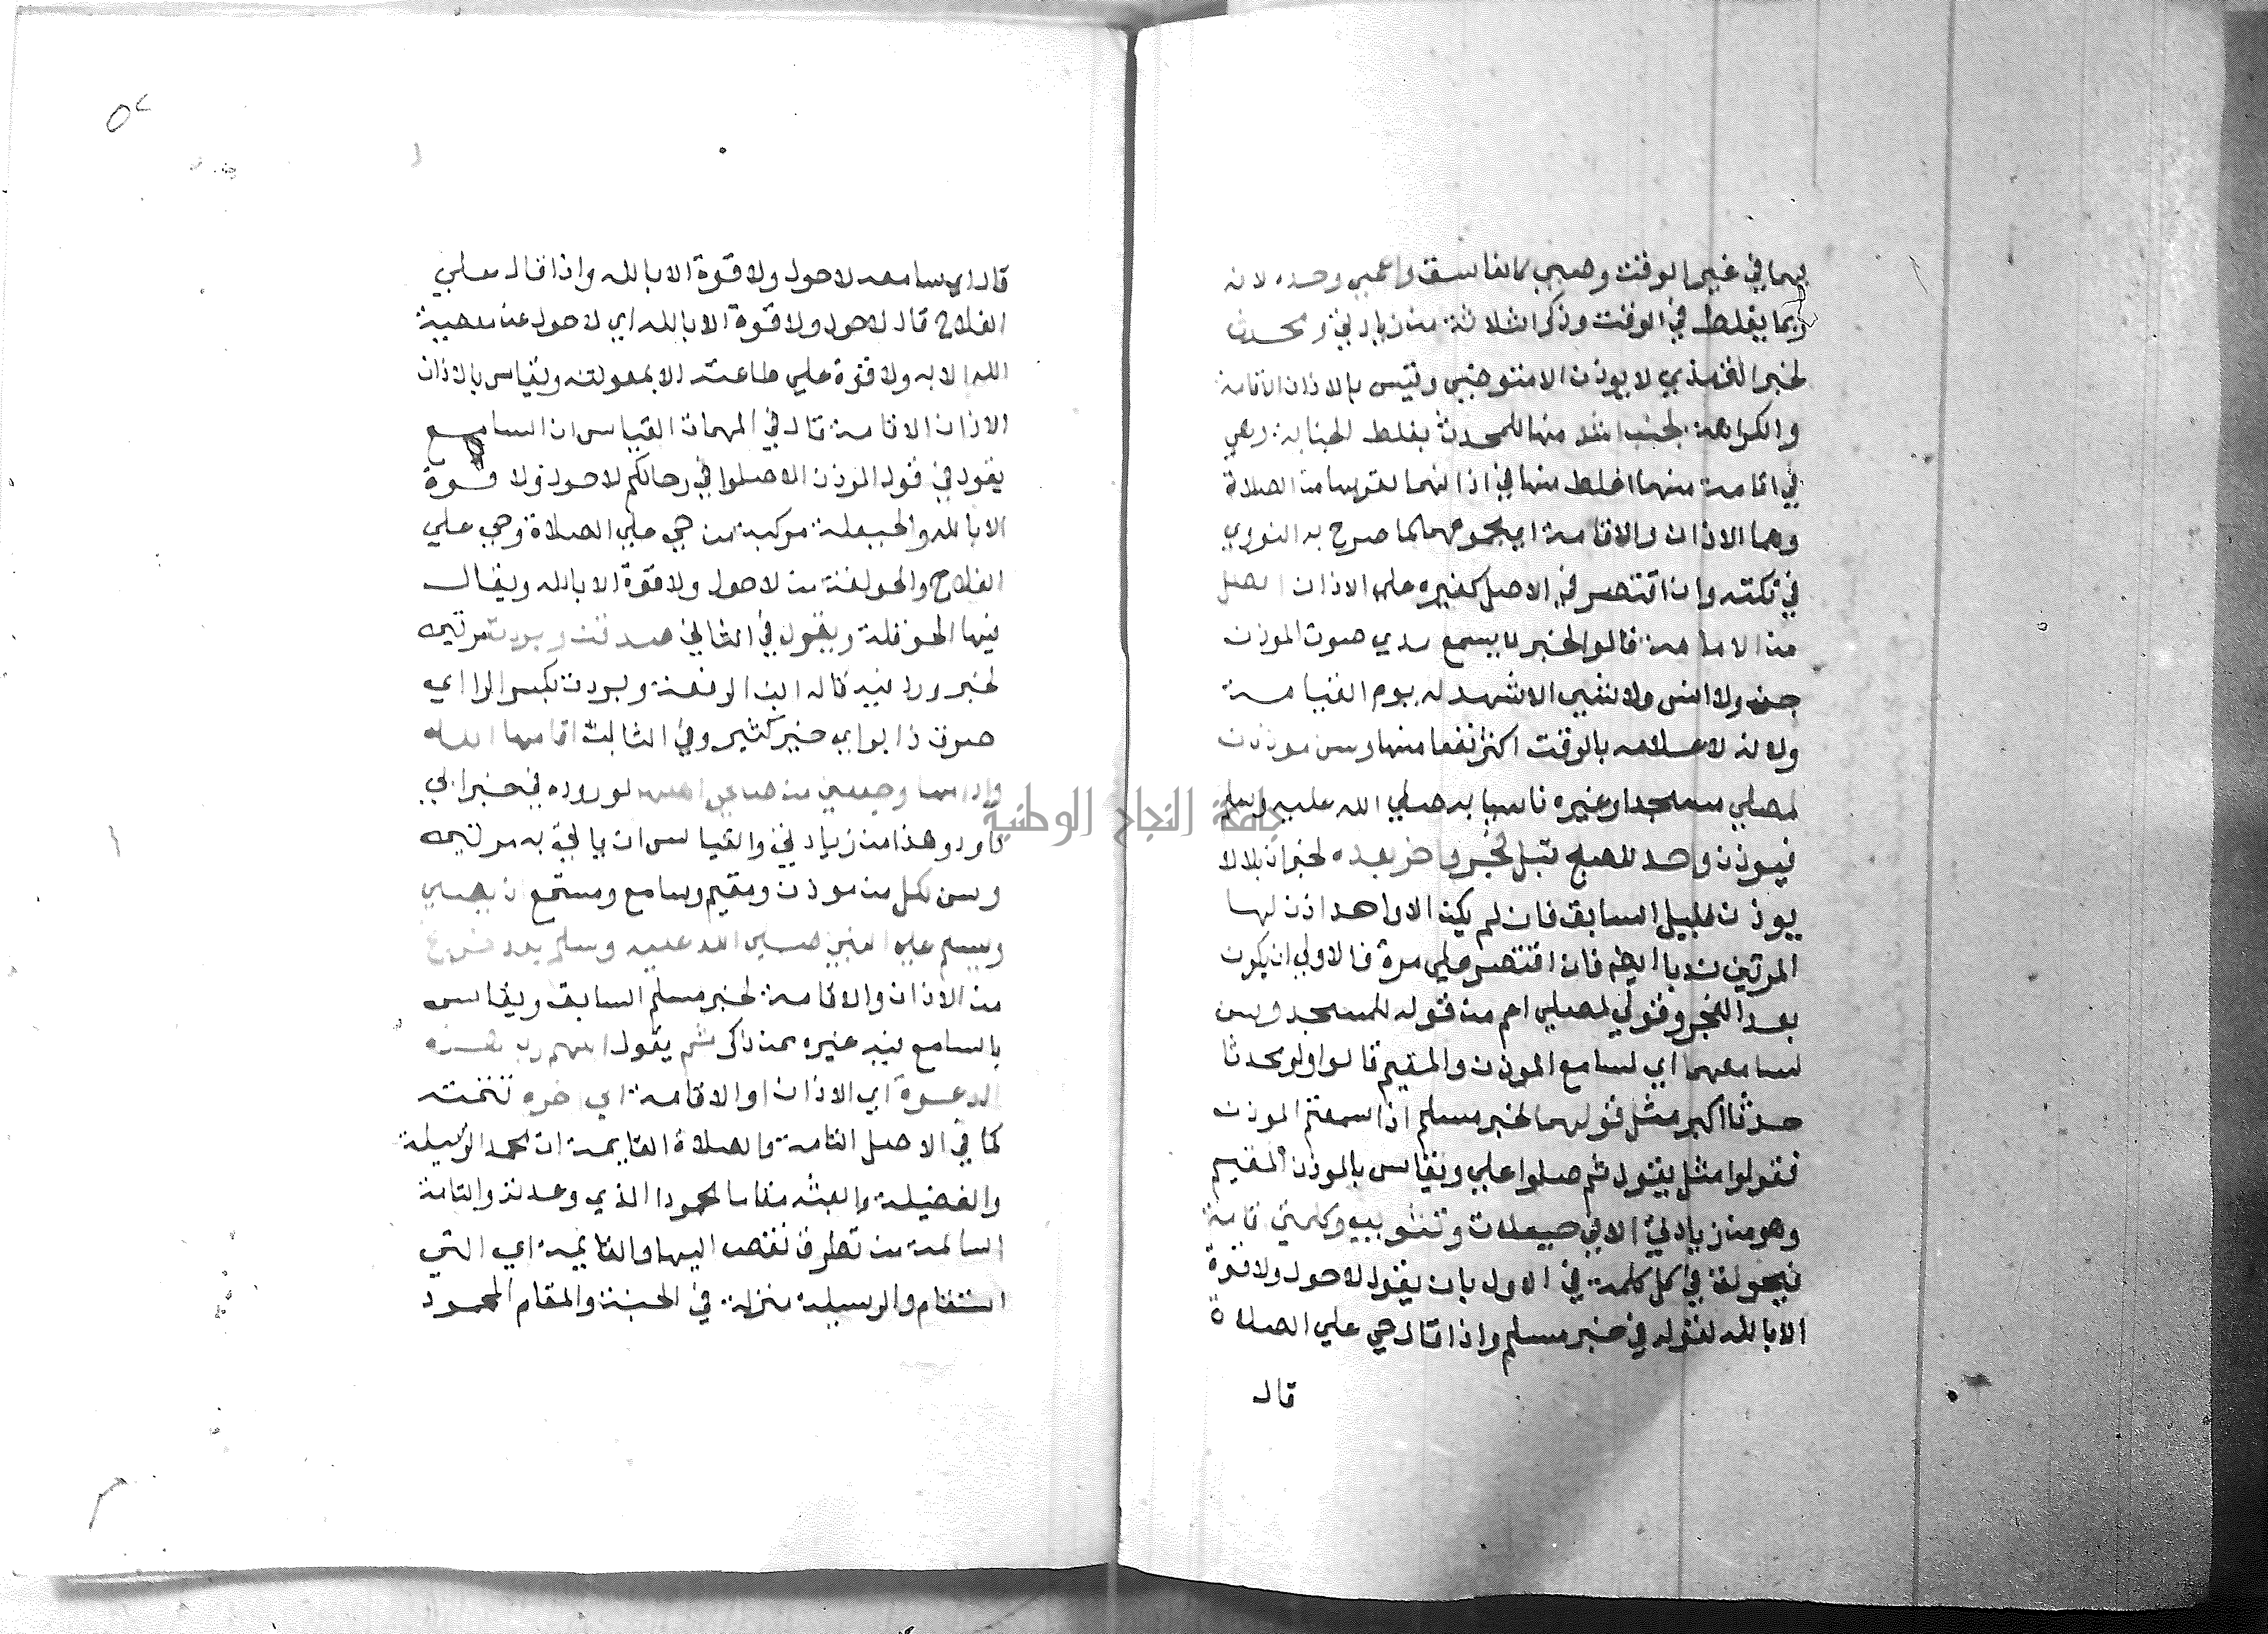 بهما في غير الوقت وصبي كالفاسق واعمي وحده لانه
ربما يغلط في الوقت وذكر الثلاثة من زيادتي ومحدث
لخبر الترمذي لا يوذن الا متوضي وقيس بالاذان الاقامة
والكراهة لجنب اشد منها للمحدث بغلط الجنابة وهي
في اقامة منهما اغلظ منها في اذانهما لقربها من الصلاة
وهما الاذان والاقامة اي مجموعهما كما صرح به النووي
في نكته وان اقتصر في الاصل كغيره علي الاذان افضل
من الامامة قالوا لخبر لا يسمع مدي صوت الموذن
جن ولا انس ولا شي الا شهد له يوم القيامة
ولانه لاعلامه بالوقت اكثر نفعا منها وسن موذنان
لمصلي مسجد او غيره تاسيا به صلي الله عليه وسلم
فيوذن واحد للصبح قبل فجر واخر بعده لخبر ان بلالا
يوذن بليل السابق فان لم يكن الا واحد اذن لها
المرتين ندبا ايضا فان اقتصر علي مرة فالاولي ان يكون
بعد الفجر وقولي لمصلي اعم من قوله للمسجد وسن
لسامعهما اي لسامع الموذن والمقيم قالوا ولو محدثا
حدثا اكبر مثل قولهما لخبر مسلم اذا سمعتم الموذن
فقولوا مثل يقول ثم صلوا علي ويقاس بالموذن المقيم
وهو من زيادتي الا في حيعلات وتثويب وكلمتي اقامة
فيحولق في كل كلمة في الاول بان يقول لا حول ولا قوة
الا بالله لقوله في خبر مسلم واذا قال حي علي الصلاة
قال
٥٢
قال اي سامعه لا حول ولا قوة الا بالله واذا قال حي علي
الفلاح قال لا حول ولا قوة الا بالله اي لا حول عن معصية
الله الا به ولا قوة علي طاعته الا بمعونته ويقاس بالاذان
الاذان الاقامة قال في المهمات القياس ان السامع
يقول في قول الموذن الا صلوا في رحالكم لا حول ولا قوة
الا بالله والحيعلة مركبة من حي علي الصلاة وحي علي
الفلاح والحولقة من لا حول ولا قوة الا بالله ويقال
فيها الحوقلة ويقول في الثاني صدقت وبررت مرتين
لخبر ورد فيه قاله ابن الرفعة وبررت بكسر الرا اي
صرت ذا بر اي خير كثير وفي الثالث اقامها الله
وادامها وجعلني من صالحي اهلها لوروده في خبر ابي
داود وهذا من زيادتي والقياس ان ياتي به مرتين
وسن لكل من موذن ومقيم وسامع ومستمع ان يصلي
ويسلم علي النبي صلي الله عليه وسلم بعد فراغ
من الاذان والاقامة لخبر مسلم السابق ويقاس
بالسامع فيه غيره ممن ذكر ثم يقول اللهم رب هذه
الدعوة اي الاذان او الاقامة الي اخره تتمته
كما في الاصل التامة والصلاة القايمة ات محمد الوسيلة
والفضيلة وابعثه مقاما محمودا الذي وعدته والتامة
السالمة من تطرق نقص اليها والقايمة اي التي
ستقام والوسيلة منزلة في الجنة والمقام المحمود
جامعة النجاح الوطنية